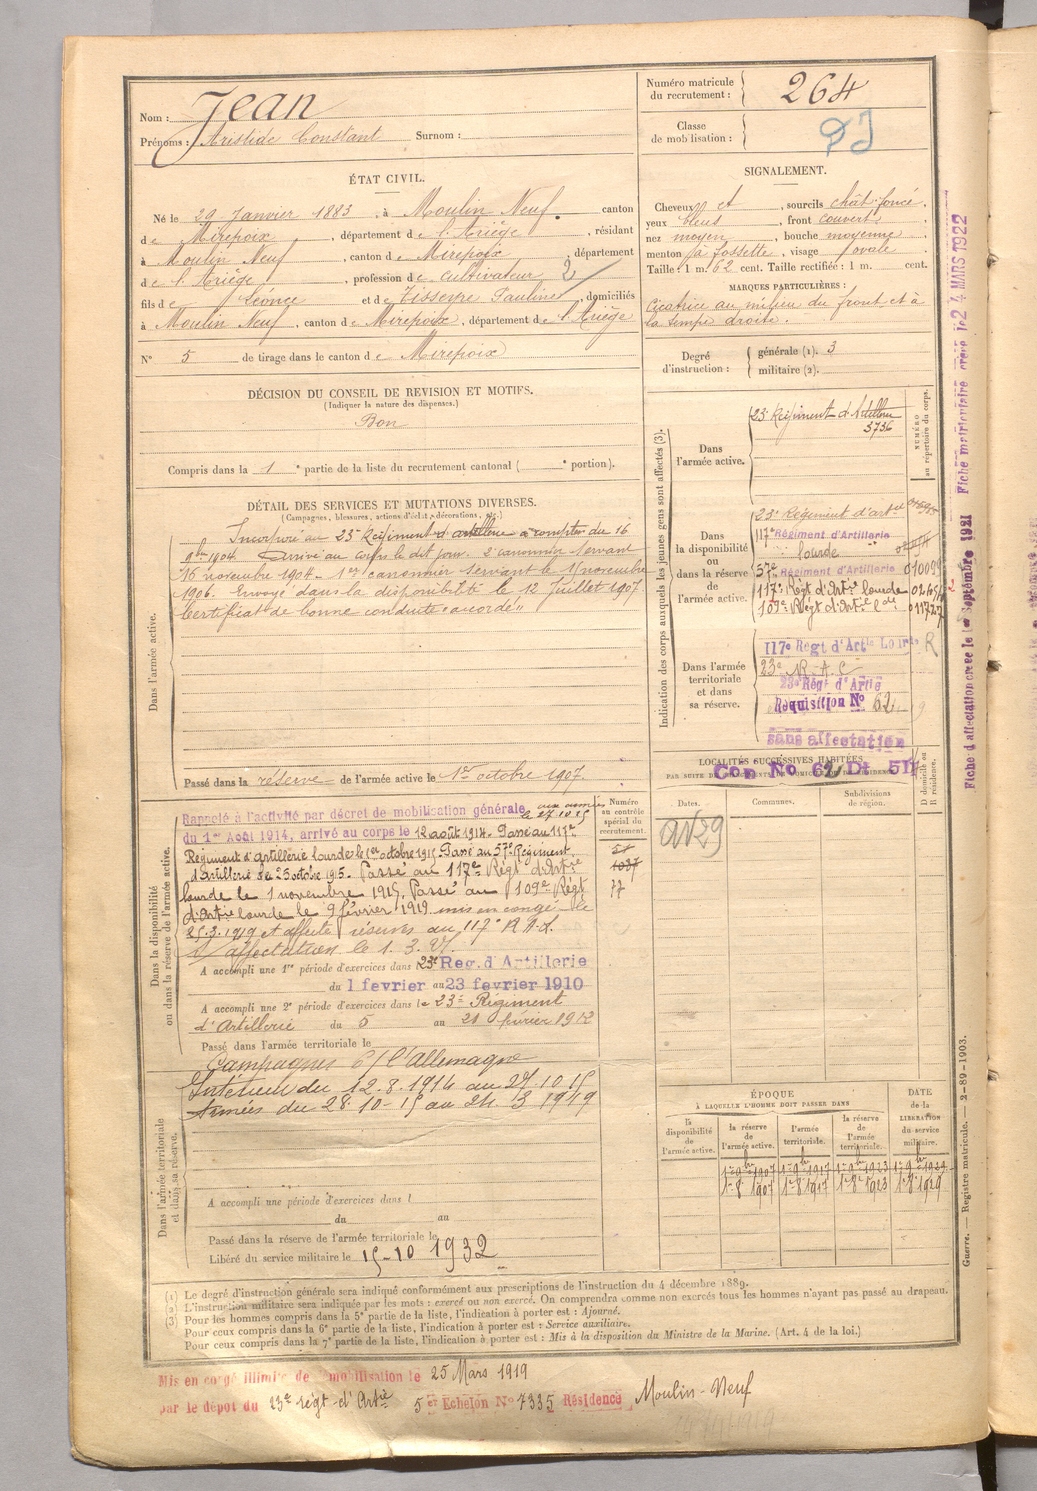 Nom : Jean
Prénoms : Aristide Constant Surnom :
Numéro matricule du recrutement : 264
Classe de mobilisation :
ÉTAT CIVIL.
Né le 29 Janvier 1883, à Moulin Neuf, canton
de Mirepoix, département de l'Ariège, résidant
à Moulin Neuf, canton de Mirepoix, département
de l'Ariège, profession de cultivateur 2
fils de Léonce et de Tisseyre Pauline, domiciliés
à Moulin Neuf, canton de Mirepoix, département de l'Ariège
N° 5 de tirage dans le canton de Mirepoix
SIGNALEMENT.
Cheveux et, sourcils chât. foncé,
yeux bleus, front couvert,
nez moyen, bouche moyenne,
menton à fossette, visage ovale
Taille : 1 m. 62 cent. Taille rectifiée : 1 m. cent.
MARQUES PARTICULIÈRES :
Cicatrice au milieu du front et à
la tempe droite.
Degré d'instruction : générale (1). 3
militaire (2).
DÉCISION DU CONSEIL DE REVISION ET MOTIFS.
(Indiquer la nature des dispenses.)
Bon
Compris dans la 1e partie de la liste du recrutement cantonal ( e portion).
DÉTAIL DES SERVICES ET MUTATIONS DIVERSES.
(Campagnes, blessures, actions d'éclat, décorations, etc.)
Dans l'armée active.
Incorporé au 23e Régiment d'artillerie à compter du 16
9bre 1904. Arrivé au corps le dit jour. 2e canonnier servant
16 novembre 1904. 1er canonnier servant le 1 novembre
1906. Envoyé dans la disponibilité le 12 Juillet 1907.
Certificat de bonne conduite "accordé"
Passé dans la réserve de l'armée active le 1er octobre 1907.
Indication des corps auxquels les jeunes gens sont affectés (3).
NUMÉRO au répertoire du corps.
Dans l'armée active.
23e Régiment d'Artillerie
3736
Dans la disponibilité ou dans la réserve de l'armée active.
23e Régiment d'art
117e Régiment d'Artillerie
lourde
57e Régiment d'Artillerie
117e Régt d'Art ie lourde
109e Régt d'Art ie
Dans l'armée territoriale et dans sa réserve.
117e Régt d'Art ie R
23e R.A.C
23e Régt d'Artie
Réquisition No 62
sans affectation
LOCALITÉS SUCCESSIVES HABITÉES
PAR SUITE DE CHANGEMENTS DE DOMICILE OU DE RÉSIDENCE.
Con No 62 Dt 511
D domicile ou R résidence.
Dates. Communes. Subdivisions de région.
Numéro au contrôle spécial du recrutement.
1037
77
Dans la disponibilité ou dans la réserve de l'armée active.
Rappelé à l'activité par décret de mobilisation générale aux armées le 27 10 15
du 1er Août 1914, arrivé au corps le 12 août 1914. Passé au 117e
Régiment d'Artillerie lourde le 1er octobre 1915. Passé au 57e Régiment
d'artillerie le 25 octobre 1915. Passé au 117e Régt d'Artie
lourde le 1 novembre 1915. Passé au 109e Régt
d'Artie lourde le 9 février 1919. mis en congé le
25.3.1919 et affecté réserves au 117e R.A.L.
s/ affectation le 1.3.27.
A accompli une 1re période d'exercices dans 23e Reg. d'Artillerie
du 1 fevrier au 23 fevrier 1910
A accompli une 2e période d'exercices dans le 23e Régiment
d'Artillerie du 5 au 21 février 1912
Passé dans l'armée territoriale le
Campagnes c/ l'Allemagne
Intérieur du 12.8.1914 au 27.10.15
Armées du 28.10-15 au 24.3 1919
Dans l'armée territoriale et dans sa réserve.
A accompli une période d'exercices dans l
du au
Passé dans la réserve de l'armée territoriale le
Libéré du service militaire le 15-10 1932
ÉPOQUE
À LAQUELLE L'HOMME DOIT PASSER DANS
la disponibilité de l'armée active. la réserve de l'armée active. l'armée territoriale. la réserve de l'armée territoriale. DATE de la LIBÉRATION du service militaire.
1er 9bre 1907 1er 9bre 1917 1er 9bre 1923 1er 9bre 1929
1er 8bre 1907 1er 8bre 1917 1er 8bre 1923 1er 8bre 1929
(1) Le degré d'instruction générale sera indiqué conformément aux prescriptions de l'instruction du 4 décembre 1889.
(2) L'instruction militaire sera indiquée par les mots : exercé ou non exercé. On comprendra comme non exercés tous les hommes n'ayant pas passé au drapeau.
(3) Pour les hommes compris dans la 5e partie de la liste, l'indication à porter est : Ajourné.
Pour ceux compris dans la 6e partie de la liste, l'indication à porter est : Service auxiliaire.
Pour ceux compris dans la 7e partie de la liste, l'indication à porter est : Mis à la disposition du Ministre de la Marine. (Art. 4 de la loi.)
Mis en congé illimité de démobilisation le 25 Mars 1919
par le dépôt du 23e régt d'Artie 5er Echelon No 7335 Résidence Moulin-Neuf
Guerre. — Registre matricule. — 2-89-1903.
Fiche d'affectation créée le 1er Septembre 1921 Fiche matriculaire créée le 24 MARS 1922